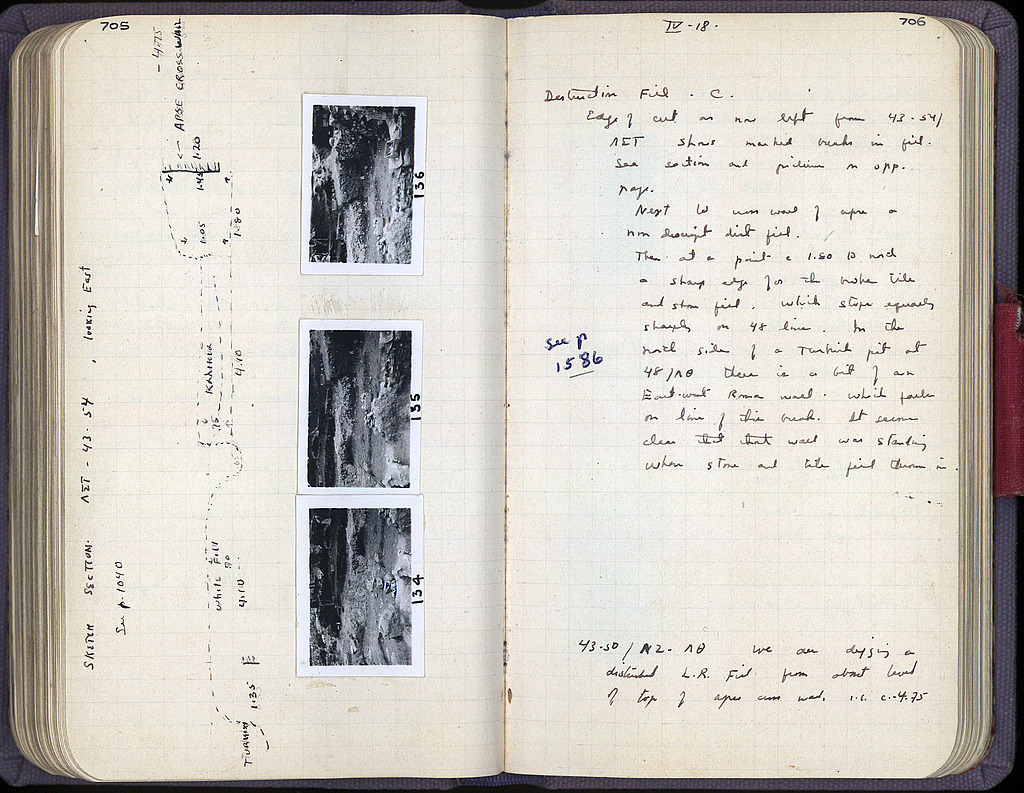 705
SKETCH SECTION. ΛΣΤ - 43-54, looking East
See p. 1040
-4.75
← APSE CROSSWALL
1.20
1.45
1.05
1.80
ΚΑΛΛΙΚΑ
4.10
.75
white Fill
90
4.10
1.35
TURKISH
136
135
134
706
IV-18.
Destruction Fill. C.
Edge of cut as now left from 43-54/
ΛΣΤ shows marked breaks in fill.
See section and pictures on opp.
page.
Next to cross wall of apse a
non descript dist fill.
Then at a point c 1.80 to north
a sharp edge for the broken tile
and stone fill. which stops equally
sharply on 48 line. In the
north side of a Turkish pit at
48/ΛΘ there is a bit of an
East-west Roman wall. which
on line of this break. It seems
clear that that wall was standing
when stone and tile fill thrown in.
See p
1586
43-50/ΛΖ-ΛΘ we are digging a
disturbed L.R. Fill from about level
of top of apse cross wall. i.e. c.-4.75